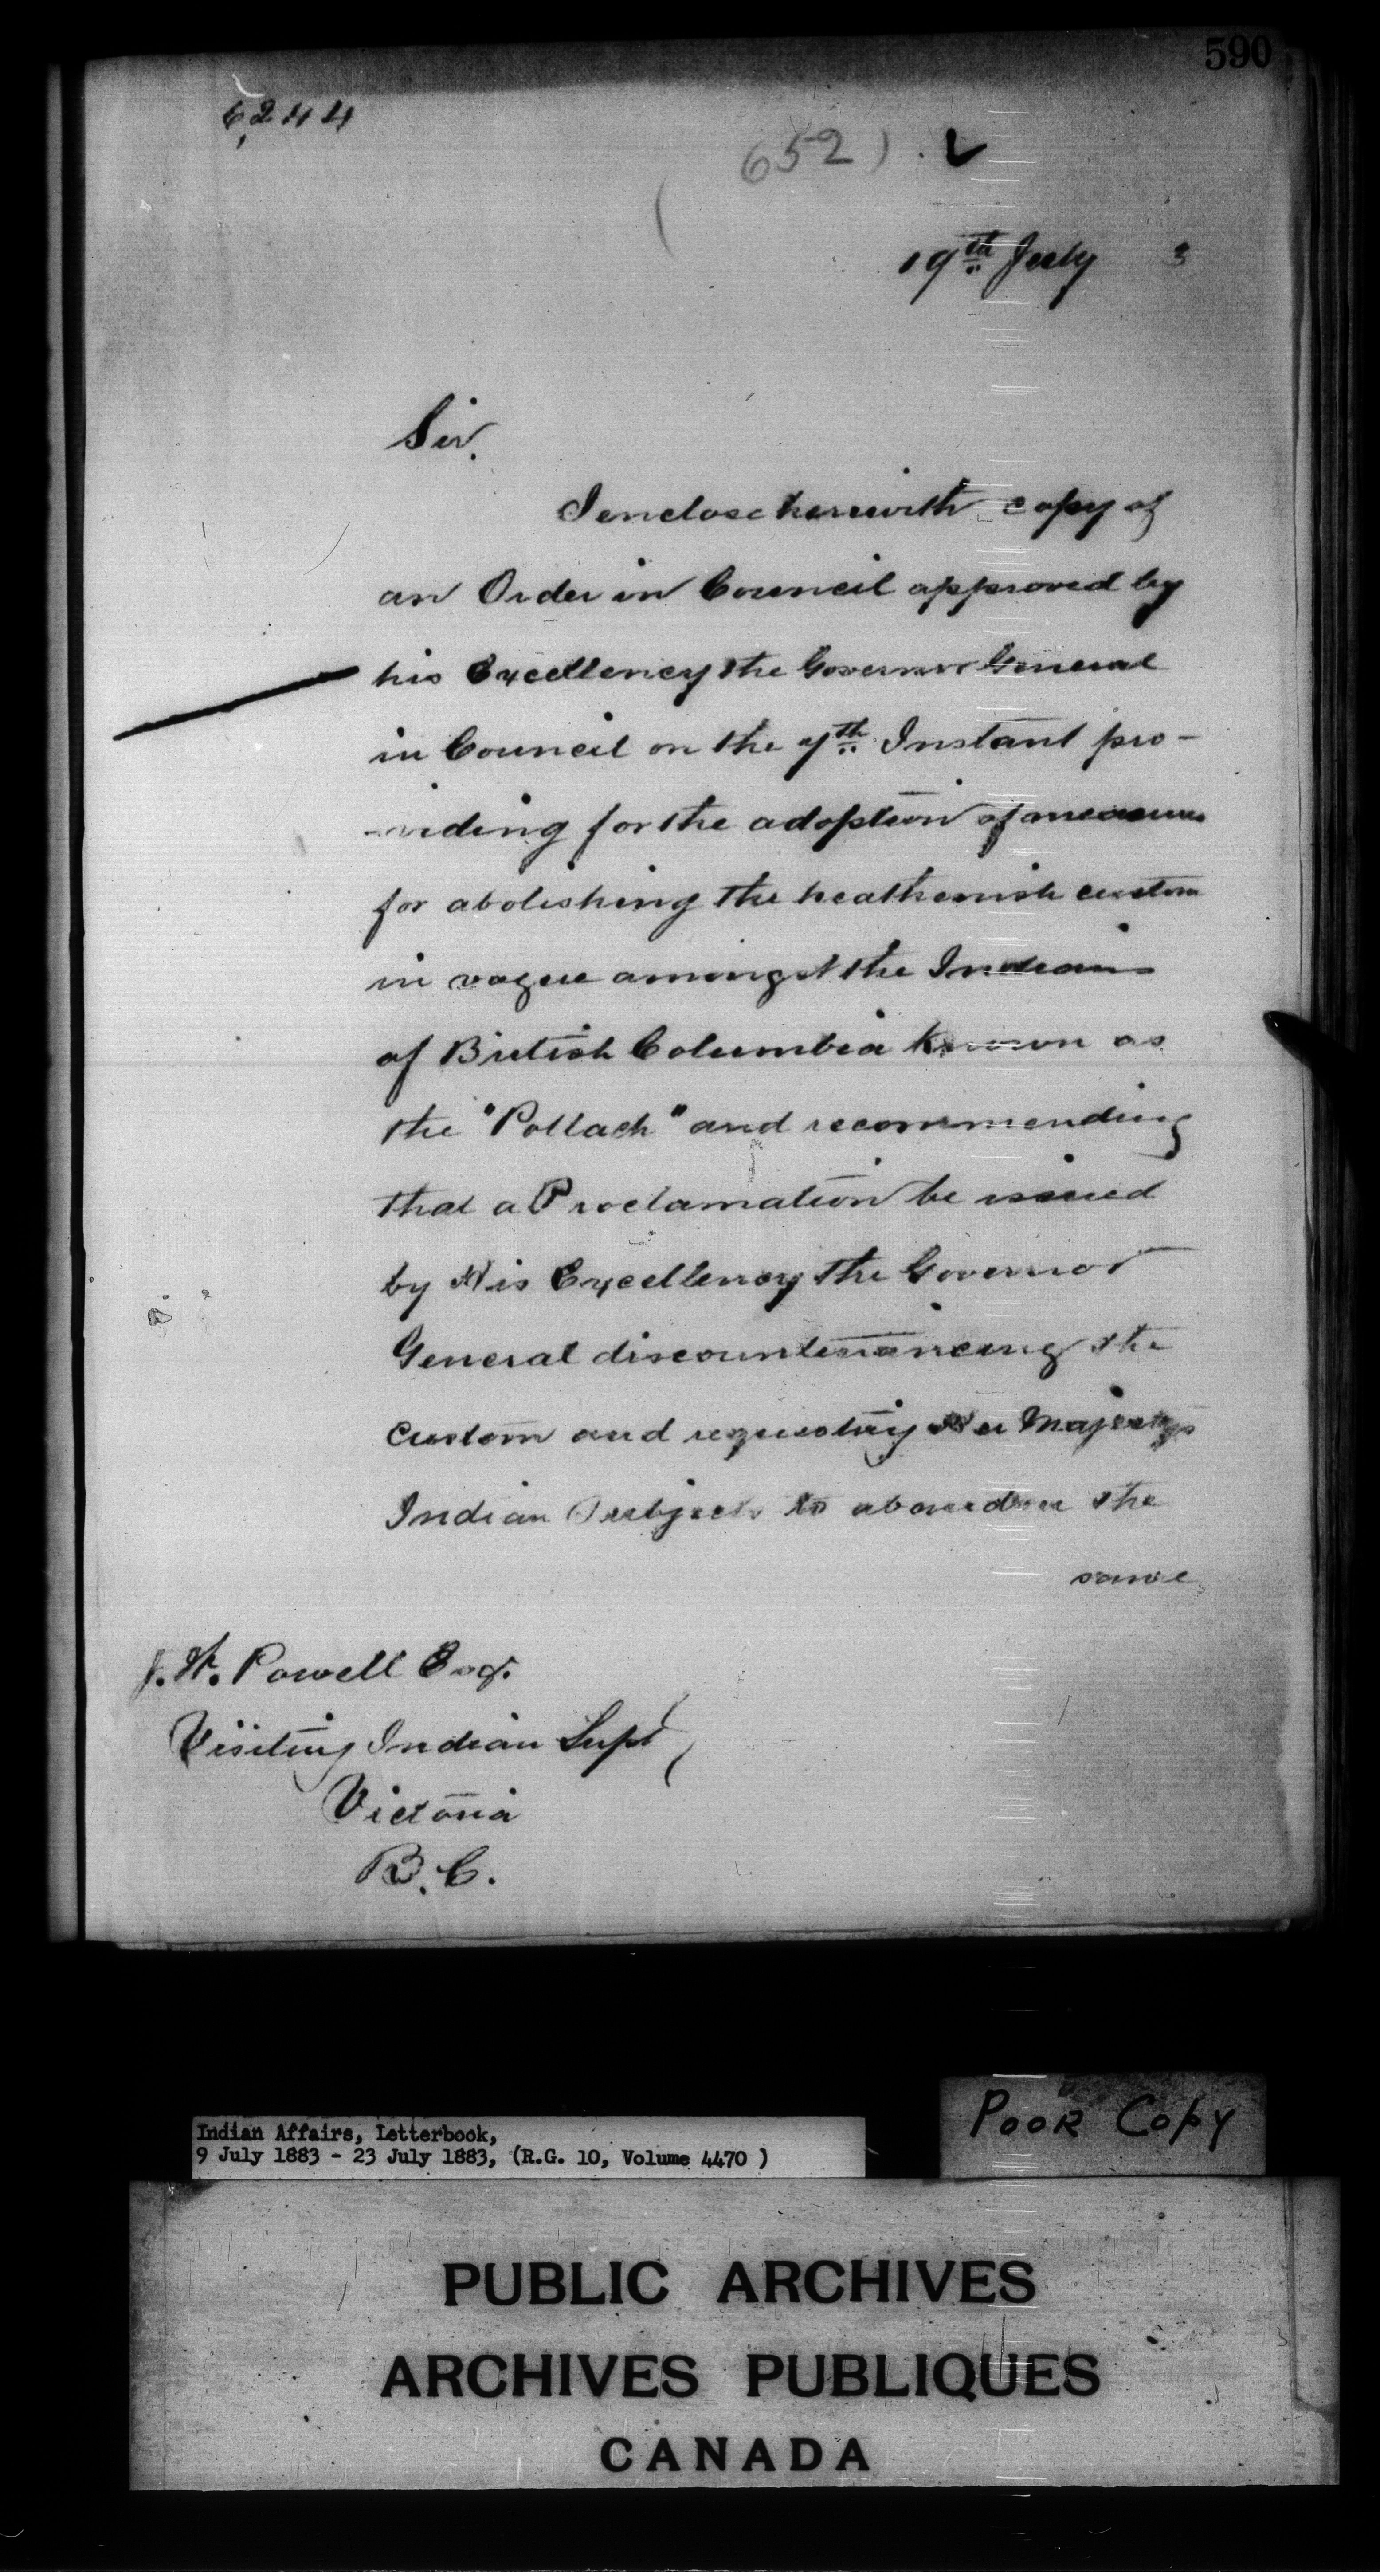 590
6244
(652).
19th July 3
Sir.
I enclose herewith copy of
an Order in Council approved by
his Excellency the Governor General
in Council on the 7th Instant pro-
-viding for the adoption of measures
for abolishing the heathenish custom
in vogue amongst the Indians
of British Columbia known as
the "Potlach" and recommending
that a Proclamation be issued
by His Excellency the Governor
General discountenancing the
custom and requesting Her Majesty's
Indian Subjects to abandon the
same
J. W. Powell Esq.
Visiting Indian Supt
Victoria
B.C.
Poor Copy
Indian Affairs, Letterbook,
9 July 1883 - 23 July 1883, (R.G. 10, Volume 4470 )
PUBLIC ARCHIVES
ARCHIVES PUBLIQUES
CANADA